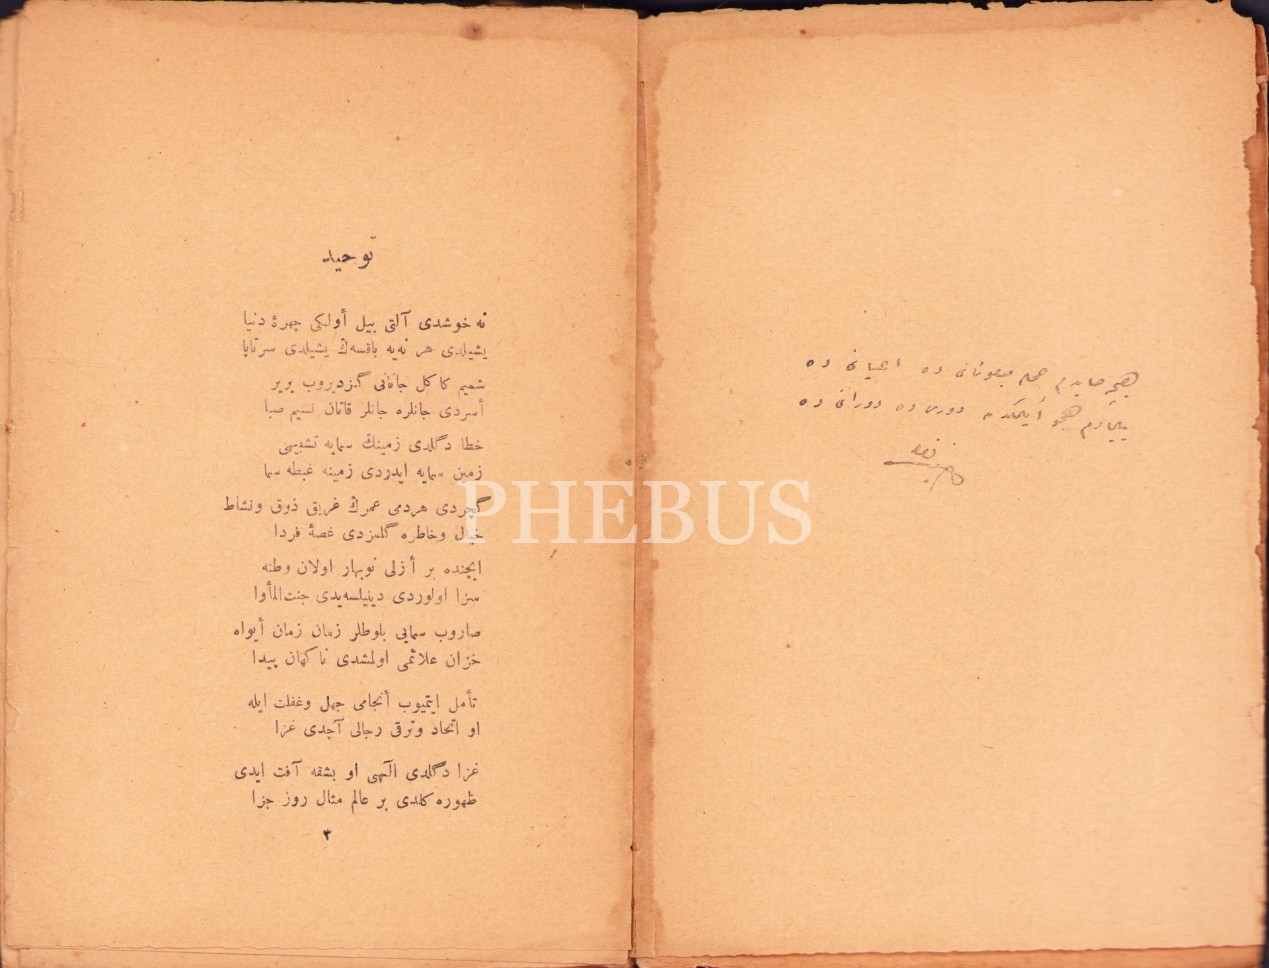 توحید
نه خوشدی آلتی بیل أولكی چهرۀ دنیا
یشیلدی هر نه‌یه باقسه‌ڭ یشیلدی سرتاپا
شمیم كاكل جانانی گزدیروب یریر
أسردی جانلره جانلر قاتان نسیم صبا
خطا دگلدی زمینڭ سمایه تشبیهی
زمین سمایه ایدردی زمینه غبطه سما
گچردی هردمی عمرڭ غریق ذوق ونشاط
خیال وخاطره گلمزدی غصۀ فردا
ایچنده بر أزلی نوبهار اولان وطنه
سزا اولوردی دینیلسه‌یدی جنت‌المأوا
صاروب سمایی بلوطلر زمان زمان أیواه
خزان علائمی اولمشدی ناكهان پیدا
تأمل ایتمیوب أنجامی جهل وغفلت ایله
او اتحاد وترقی رجالی آچدی غزا
غزا دگلدی الٓهی او بشقه آفت ایدی
ظهوره كلدی بر عالم مثال روز جزا
٣
ده اعیانی ده
ده دورانی ده
PHEBUS